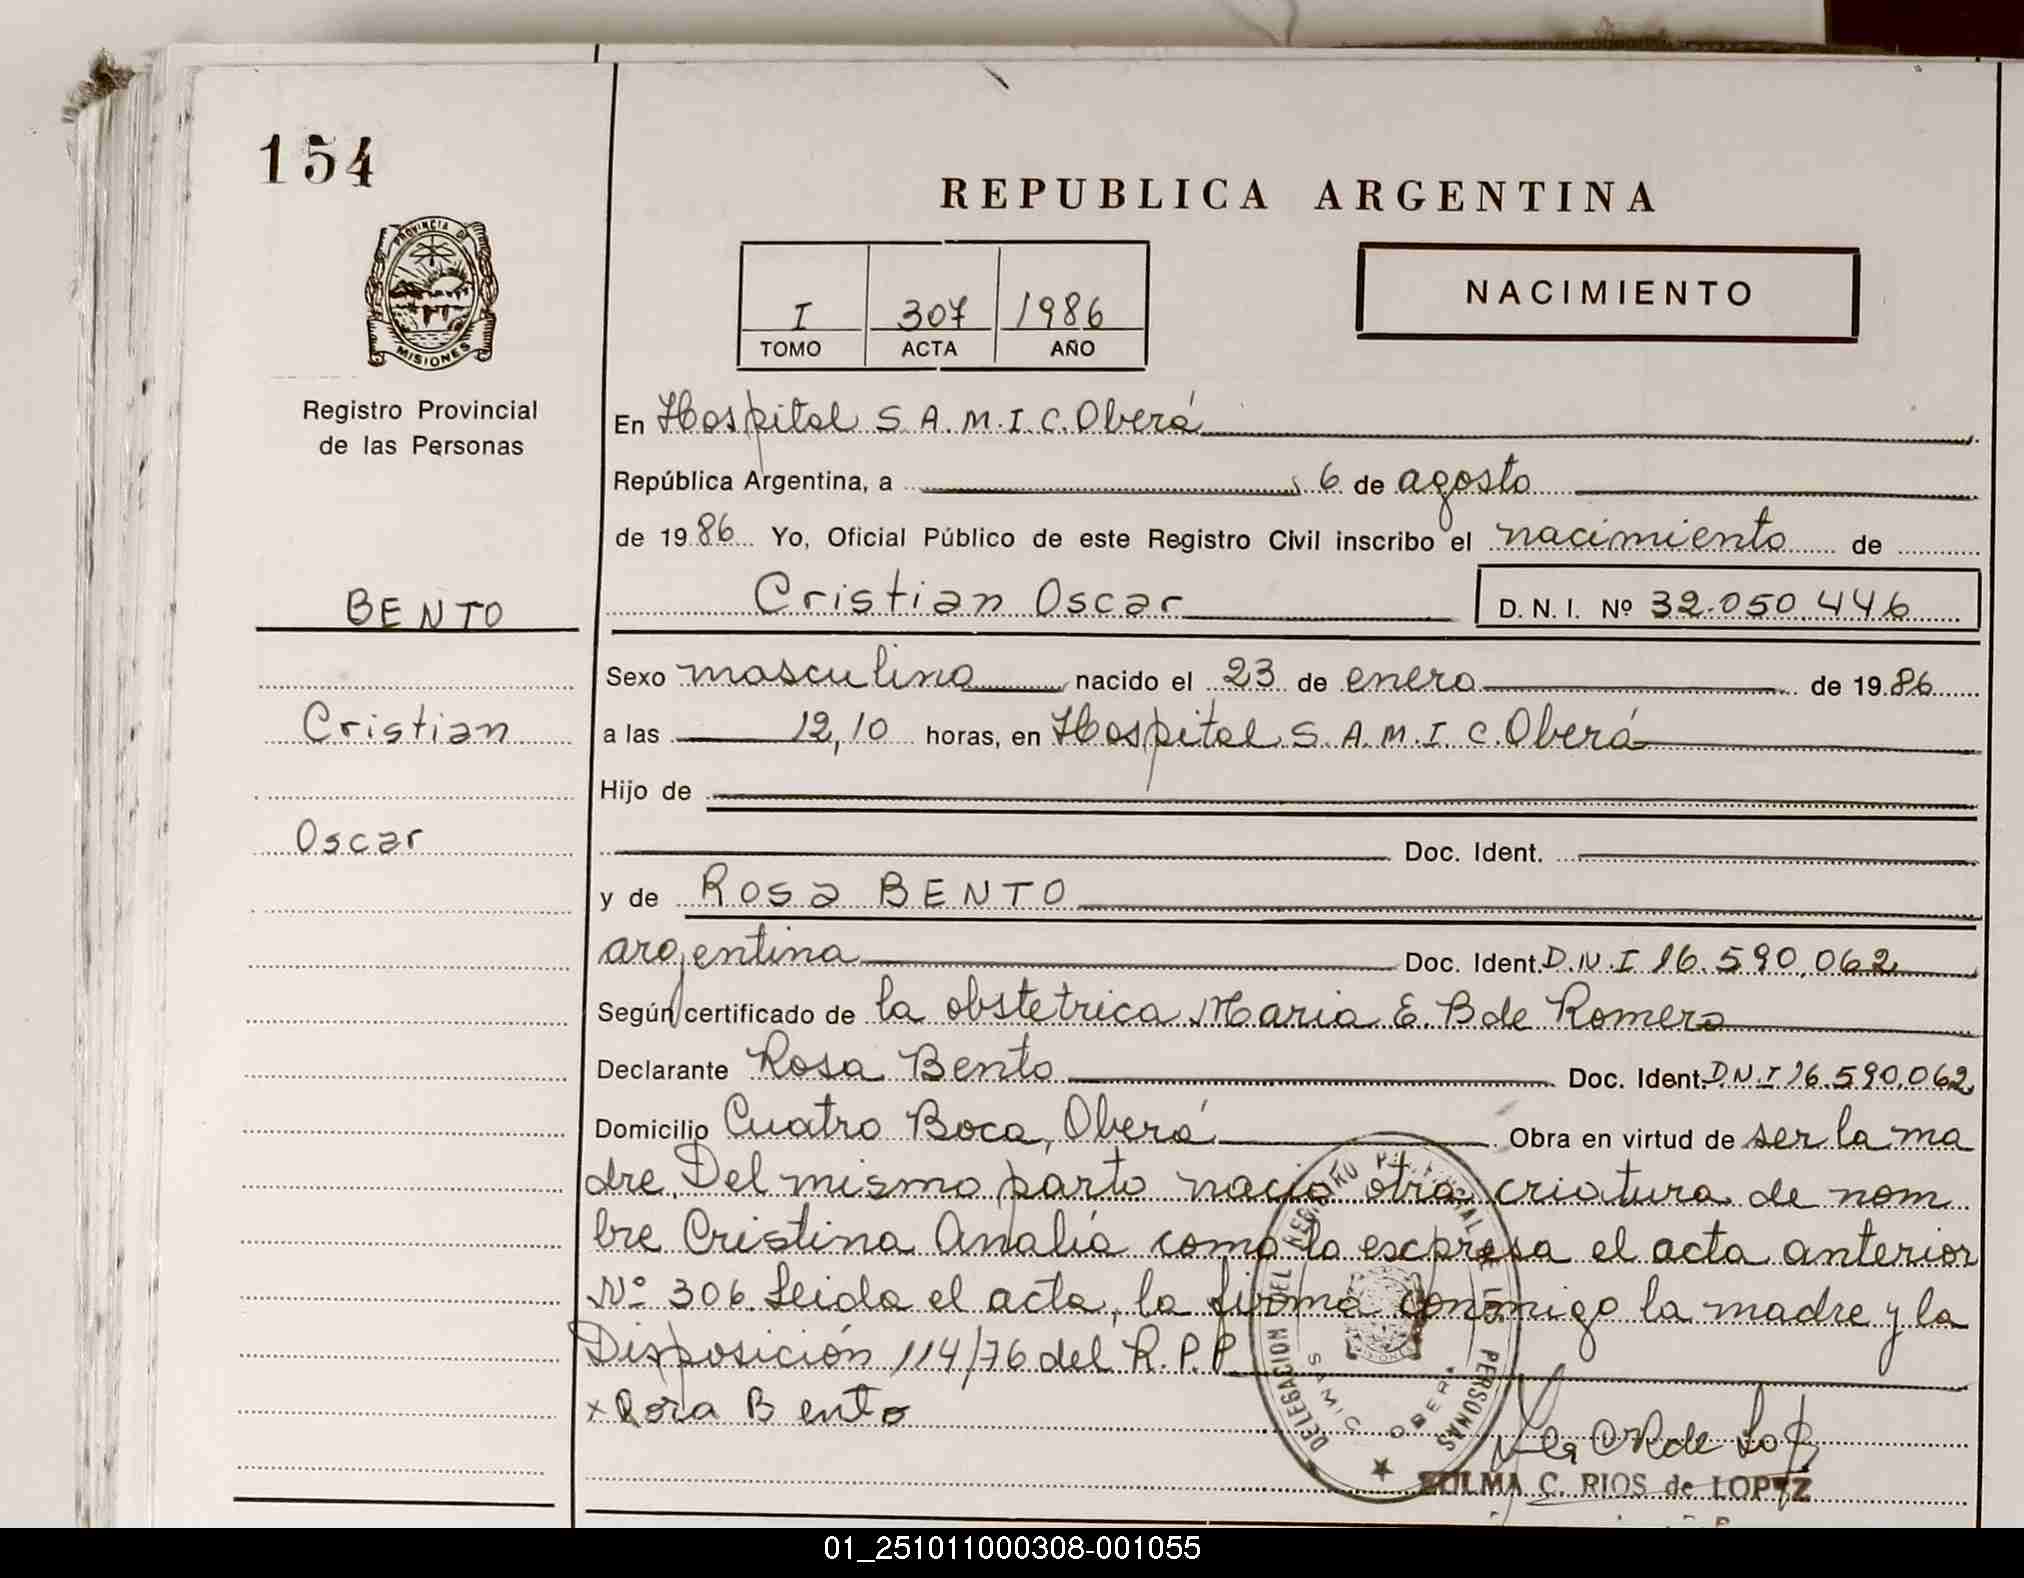 154
REPUBLICA ARGENTINA
PROVINCIA DE
MISIONES
I 307 1986
TOMO ACTA AÑO
NACIMIENTO
Registro Provincial
de las Personas
BENTO
Cristian
Oscar
En Hospital S.A.M.I.C. Oberá
República Argentina, a 6 de agosto
de 1986 Yo, Oficial Público de este Registro Civil inscribo el nacimiento de
Cristian Oscar D.N.I. Nº 32.050.446
Sexo masculino nacido el 23 de enero de 1986
a las 12,10 horas, en Hospital S.A.M.I.C. Oberá
Hijo de
Doc. Ident.
y de Rosa BENTO
argentina Doc. Ident. D.N.I 16.590.062
Según certificado de la obstetrica Maria E. B de Romero
Declarante Rosa Bento Doc. Ident. D.N.I 16.590.062
Domicilio Cuatro Boca, Oberá Obra en virtud de ser la ma
dre. Del mismo parto nació otra criatura de nom
bre Cristina Analiá como lo escpresa el acta anterior
Nº 306. Leida el acta, la firma conmigo la madre y la
Disposición 114/76 del R.P.P.
x Rosa Bento
DELEGACION DEL REGISTRO PROVINCIAL DE LAS PERSONAS
SAMIC OBERA
ZULMA C. RIOS de LOPEZ
01_251011000308-001055